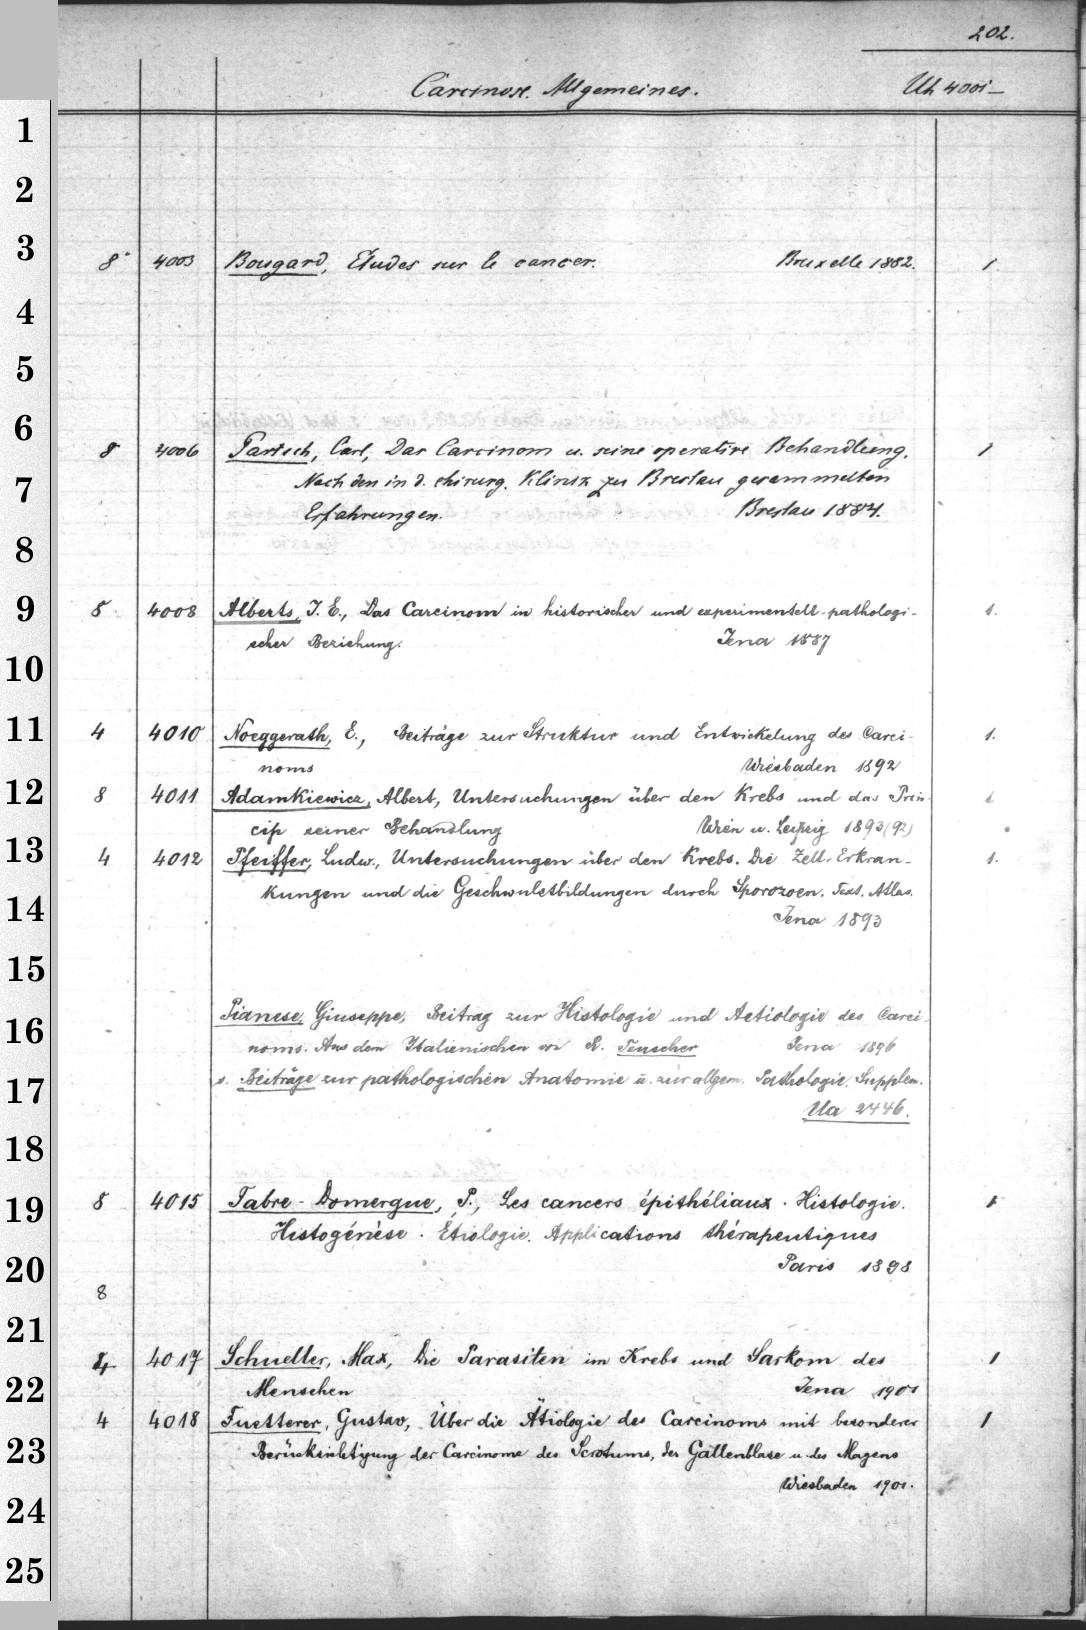 202.
Carcinose. Allgemeines. Uh 4001-
1
2
3
8° 4003 Bougard, Etudes sur le cancer. Bruxelle 1882. 1
4
5
6
8 4006 Partsch, Carl, Das Carcinom u. seine operative Behandlung. 1
7
Nach den in d. chirurg. Klinik zu Breslau gesammelten
Erfahrungen. Breslau 1884.
8
9
8 4008 Alberts, J. E., Das Carcinom in historischer und experimentell-pathologi- 1.
scher Beziehung. Jena 1887
10
11
4 4010 Noeggerath, E., Beiträge zur Struktur und Entwickelung des Carci- 1.
noms Wiesbaden 1892
12
8 4011 Adamkiewicz, Albert, Untersuchungen über den Krebs und das Prin- 1
cip seiner Behandlung Wien u. Leipzig 1893(92)
13
4 4012 Pfeiffer, Ludw., Untersuchungen über den Krebs. Die Zell-Erkran- 1.
kungen und die Geschwulstbildungen durch Sporozoen. Text. Atlas.
14
Jena 1893
15
16
Pianese, Giuseppe, Beitrag zur Histologie und Aetiologie des Carci-
noms. Aus dem Italienischen von R. Teuscher Jena 1896
17
s. Beiträge zur pathologischen Anatomie u. zur allgem. Pathologie. Supplem.
Ua 2446.
18
19
8 4015 Fabre-Domergue, P., Les cancers épithéliaux. Histologie. 1
Histogénèse. Etiologie. Applications thérapeutiques
20
Paris 1898
8
21
4 4017 Schueller, Max, Die Parasiten im Krebs und Sarkom des 1
22
Menschen Jena 1901
4 4018 Fuetterer, Gustav, Über die Ätiologie des Carcinoms mit besonderer 1
23
Berücksichtigung der Carcinome des Scrotums, der Gallenblase u. des Magens
Wiesbaden 1901.
24
25